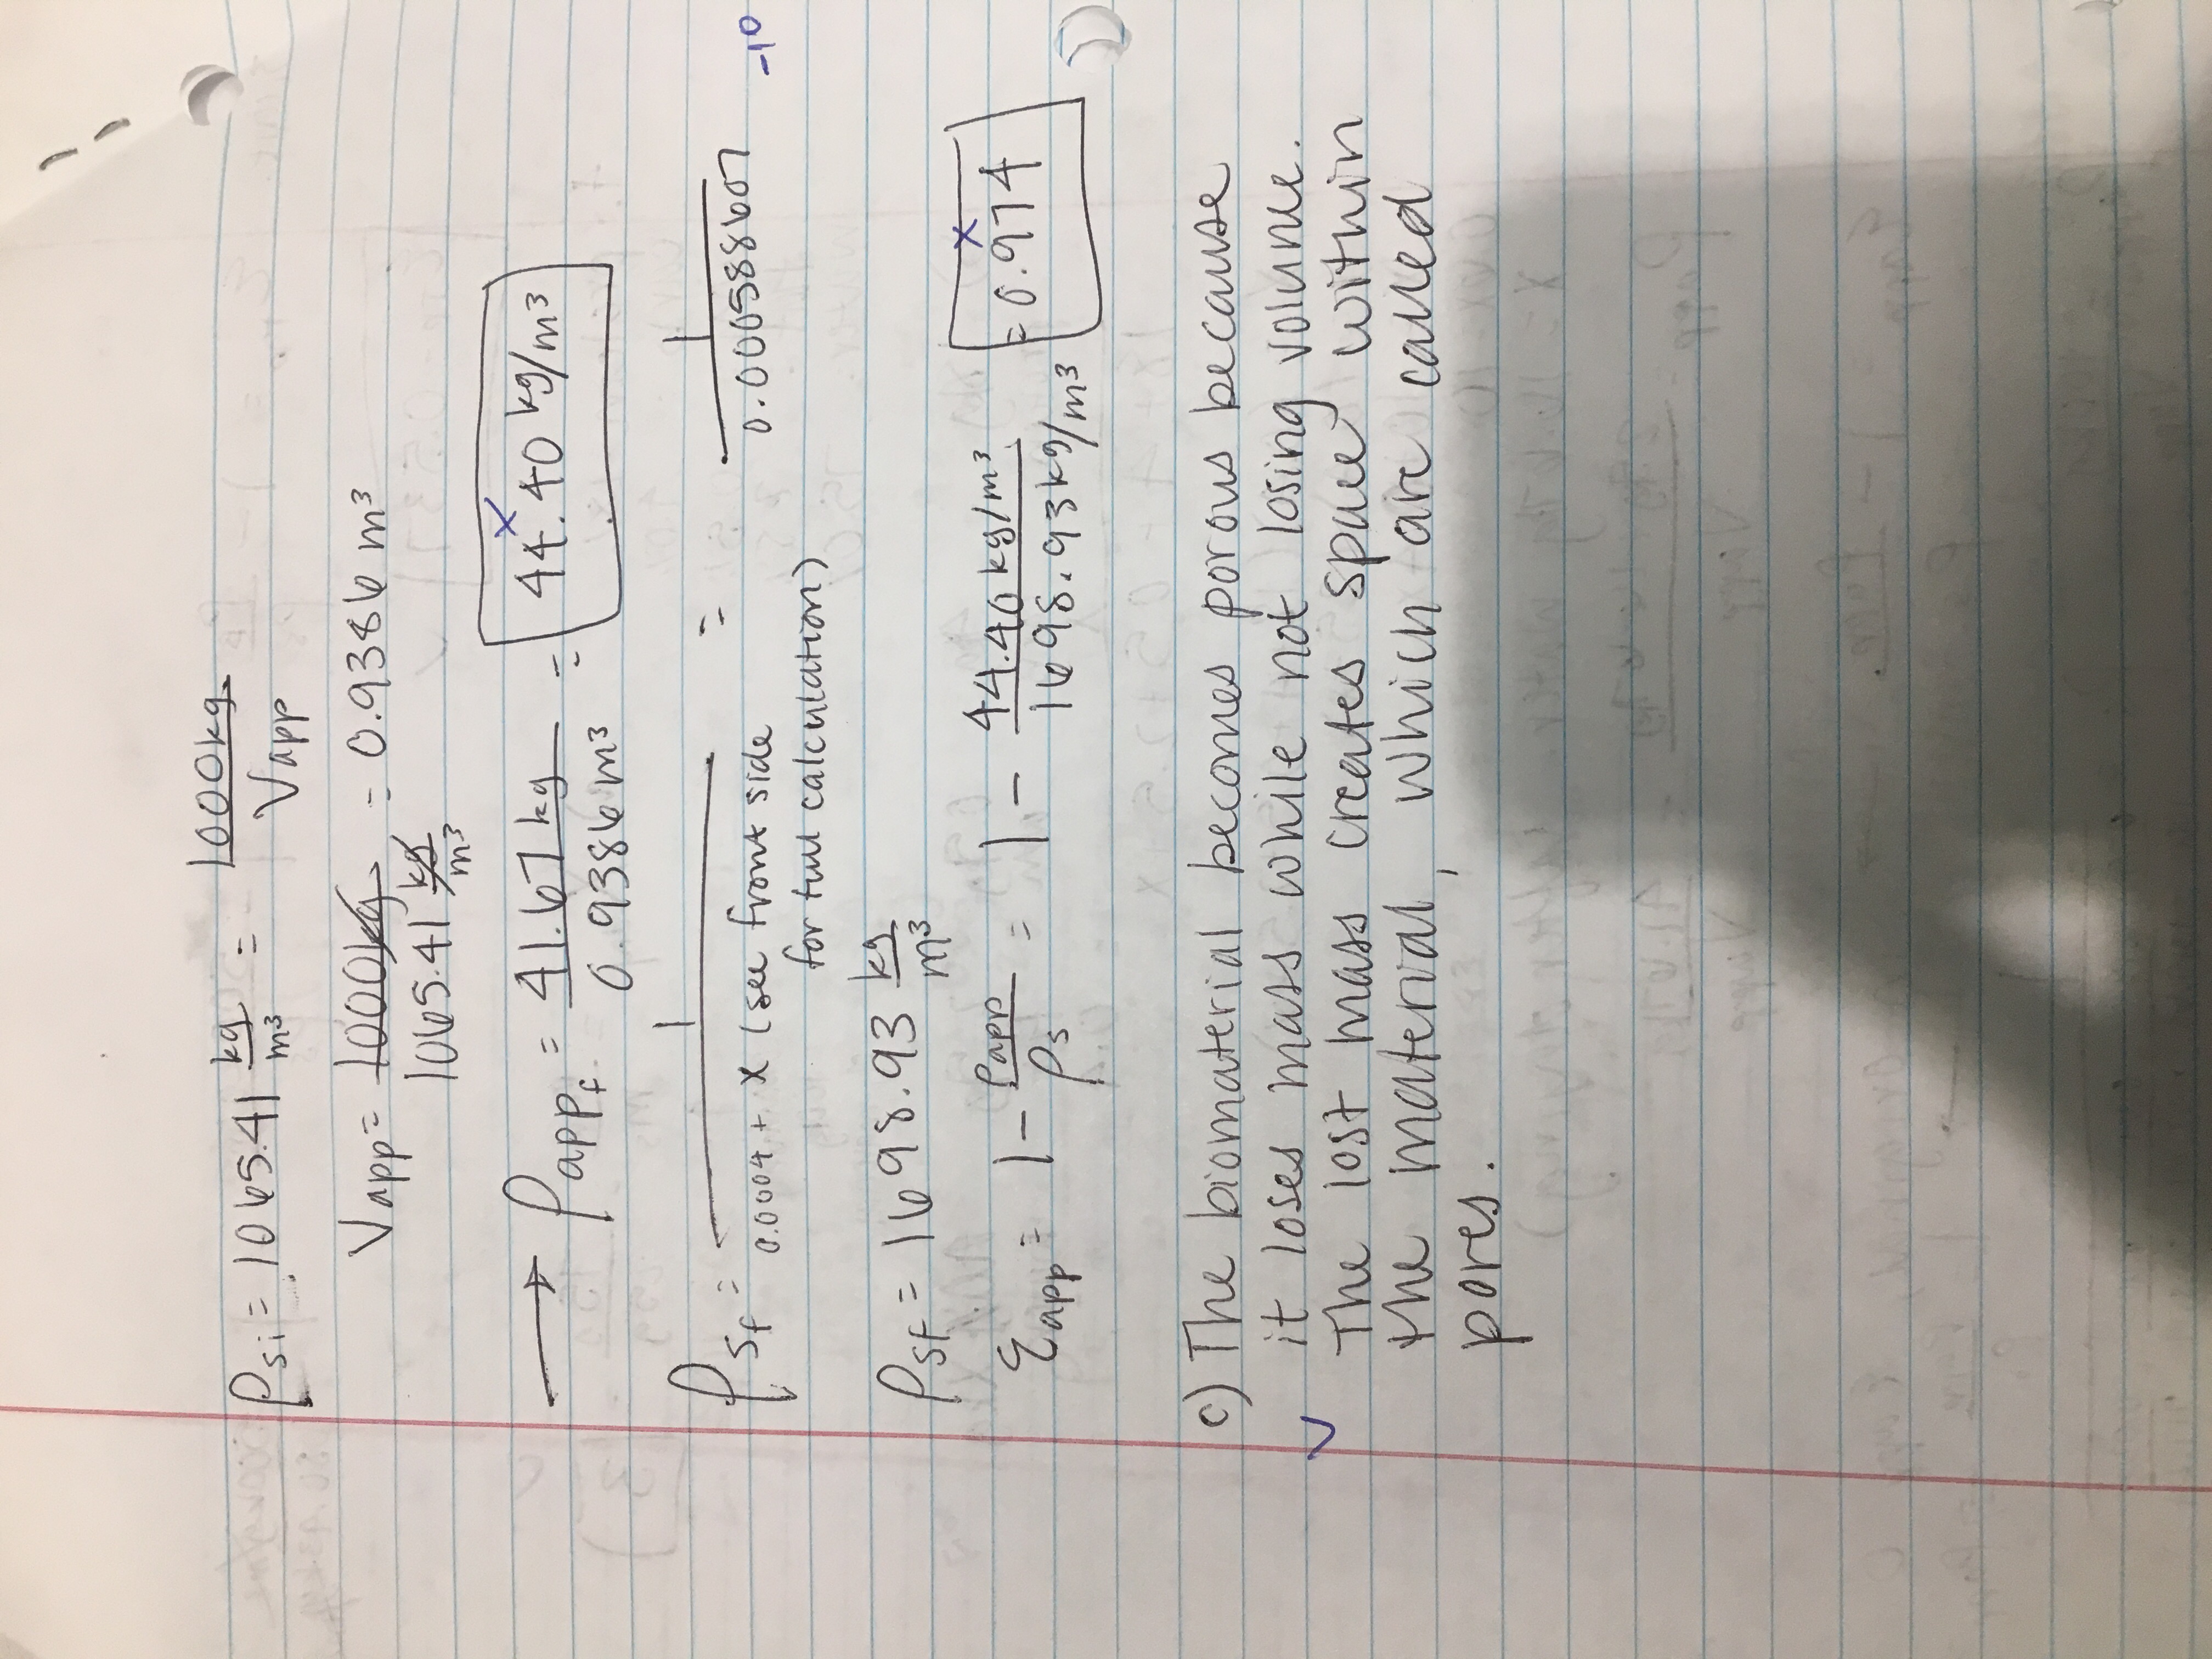 ρsi = 1065.41 kg/m³ = 1000kg/Vapp
Vapp = 1000kg/1065.41 kg/m³ = 0.9386 m³
→ ρappf = 41.67 kg/0.9386 m³ = 44.40 kg/m³
x
ρsf = 1/0.0004 + x (see front side = 1/0.000588607
for full calculation)
-10
ρsf = 1698.93 kg/m³
εapp = 1 - ρapp/ρs = 1 - 44.40 kg/m³/1698.93 kg/m³ = 0.974
x
c) The biomaterial becomes porous because
it loses mass while not losing volume.
The lost mass creates space within
the material, which are called
pores.